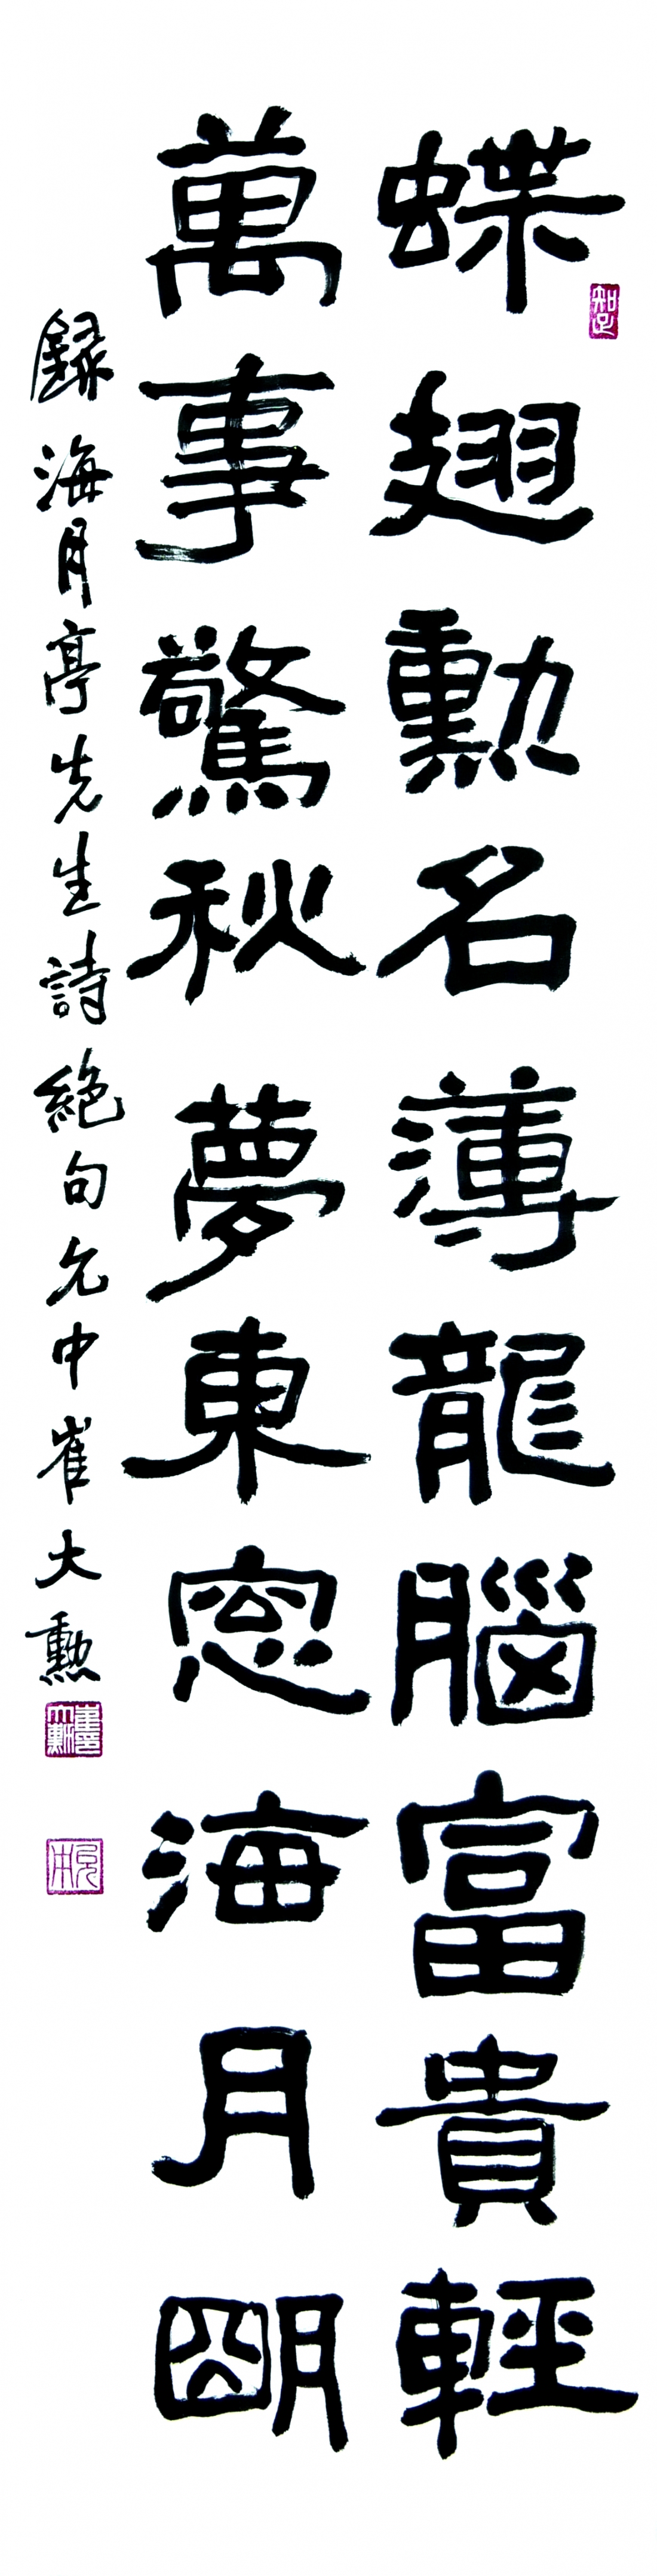 蝶翅勳名薄龍腦富貴輕
萬事驚秋夢東窓海月朙
録海月亭先生詩絶句允中崔大勲
知足